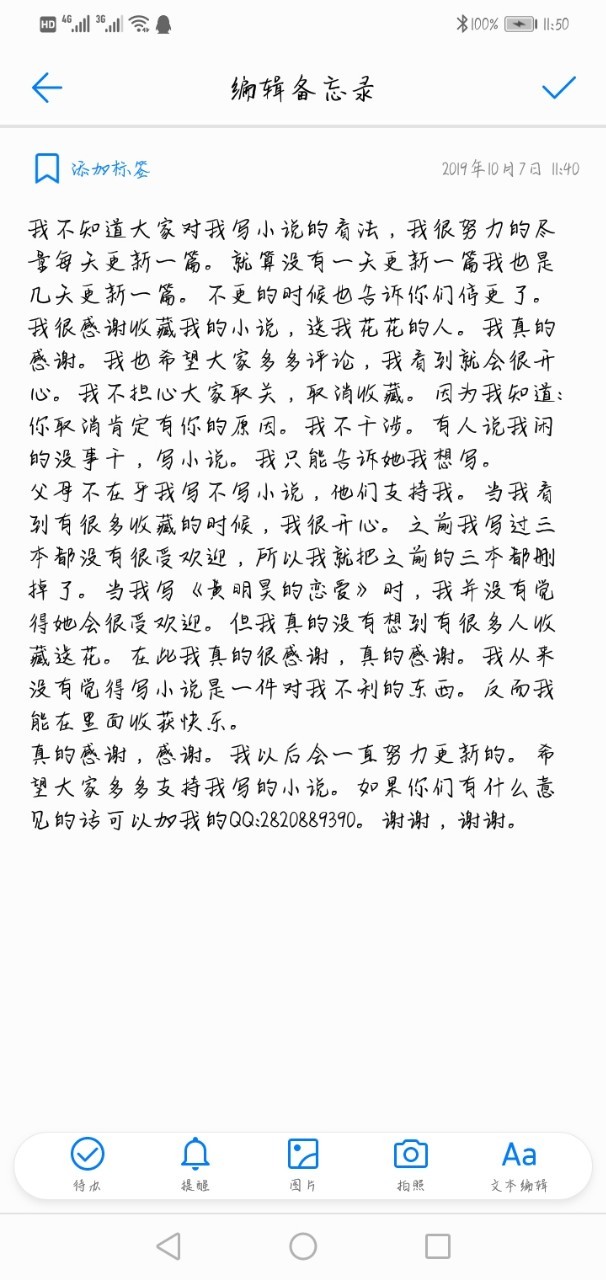 HD 4G 3G 100% 11:50
编辑备忘录
添加标签 2019年10月7日 11:40
我不知道大家对我写小说的看法，我很努力的尽
量每天更新一篇。就算没有一天更新一篇我也是
几天更新一篇。不更的时候也告诉你们停更了。
我很感谢收藏我的小说，送我花花的人。我真的
感谢。我也希望大家多多评论，我看到就会很开
心。我不担心大家取关，取消收藏。因为我知道：
你取消肯定有你的原因。我不干涉。有人说我闲
的没事干，写小说。我只能告诉她我想写。
父母不在乎我写不写小说，他们支持我。当我看
到有很多收藏的时候，我很开心。之前我写过三
本都没有很受欢迎，所以我就把之前的三本都删
掉了。当我写《黄明昊的恋爱》时，我并没有觉
得她会很受欢迎。但我真的没有想到有很多人收
藏送花。在此我真的很感谢，真的感谢。我从来
没有觉得写小说是一件对我不利的东西。反而我
能在里面收获快乐。
真的感谢，感谢。我以后会一直努力更新的。希
望大家多多支持我写的小说。如果你们有什么意
见的话可以加我的QQ:2820889390。谢谢，谢谢。
待办 提醒 图片 拍照 Aa 文本编辑